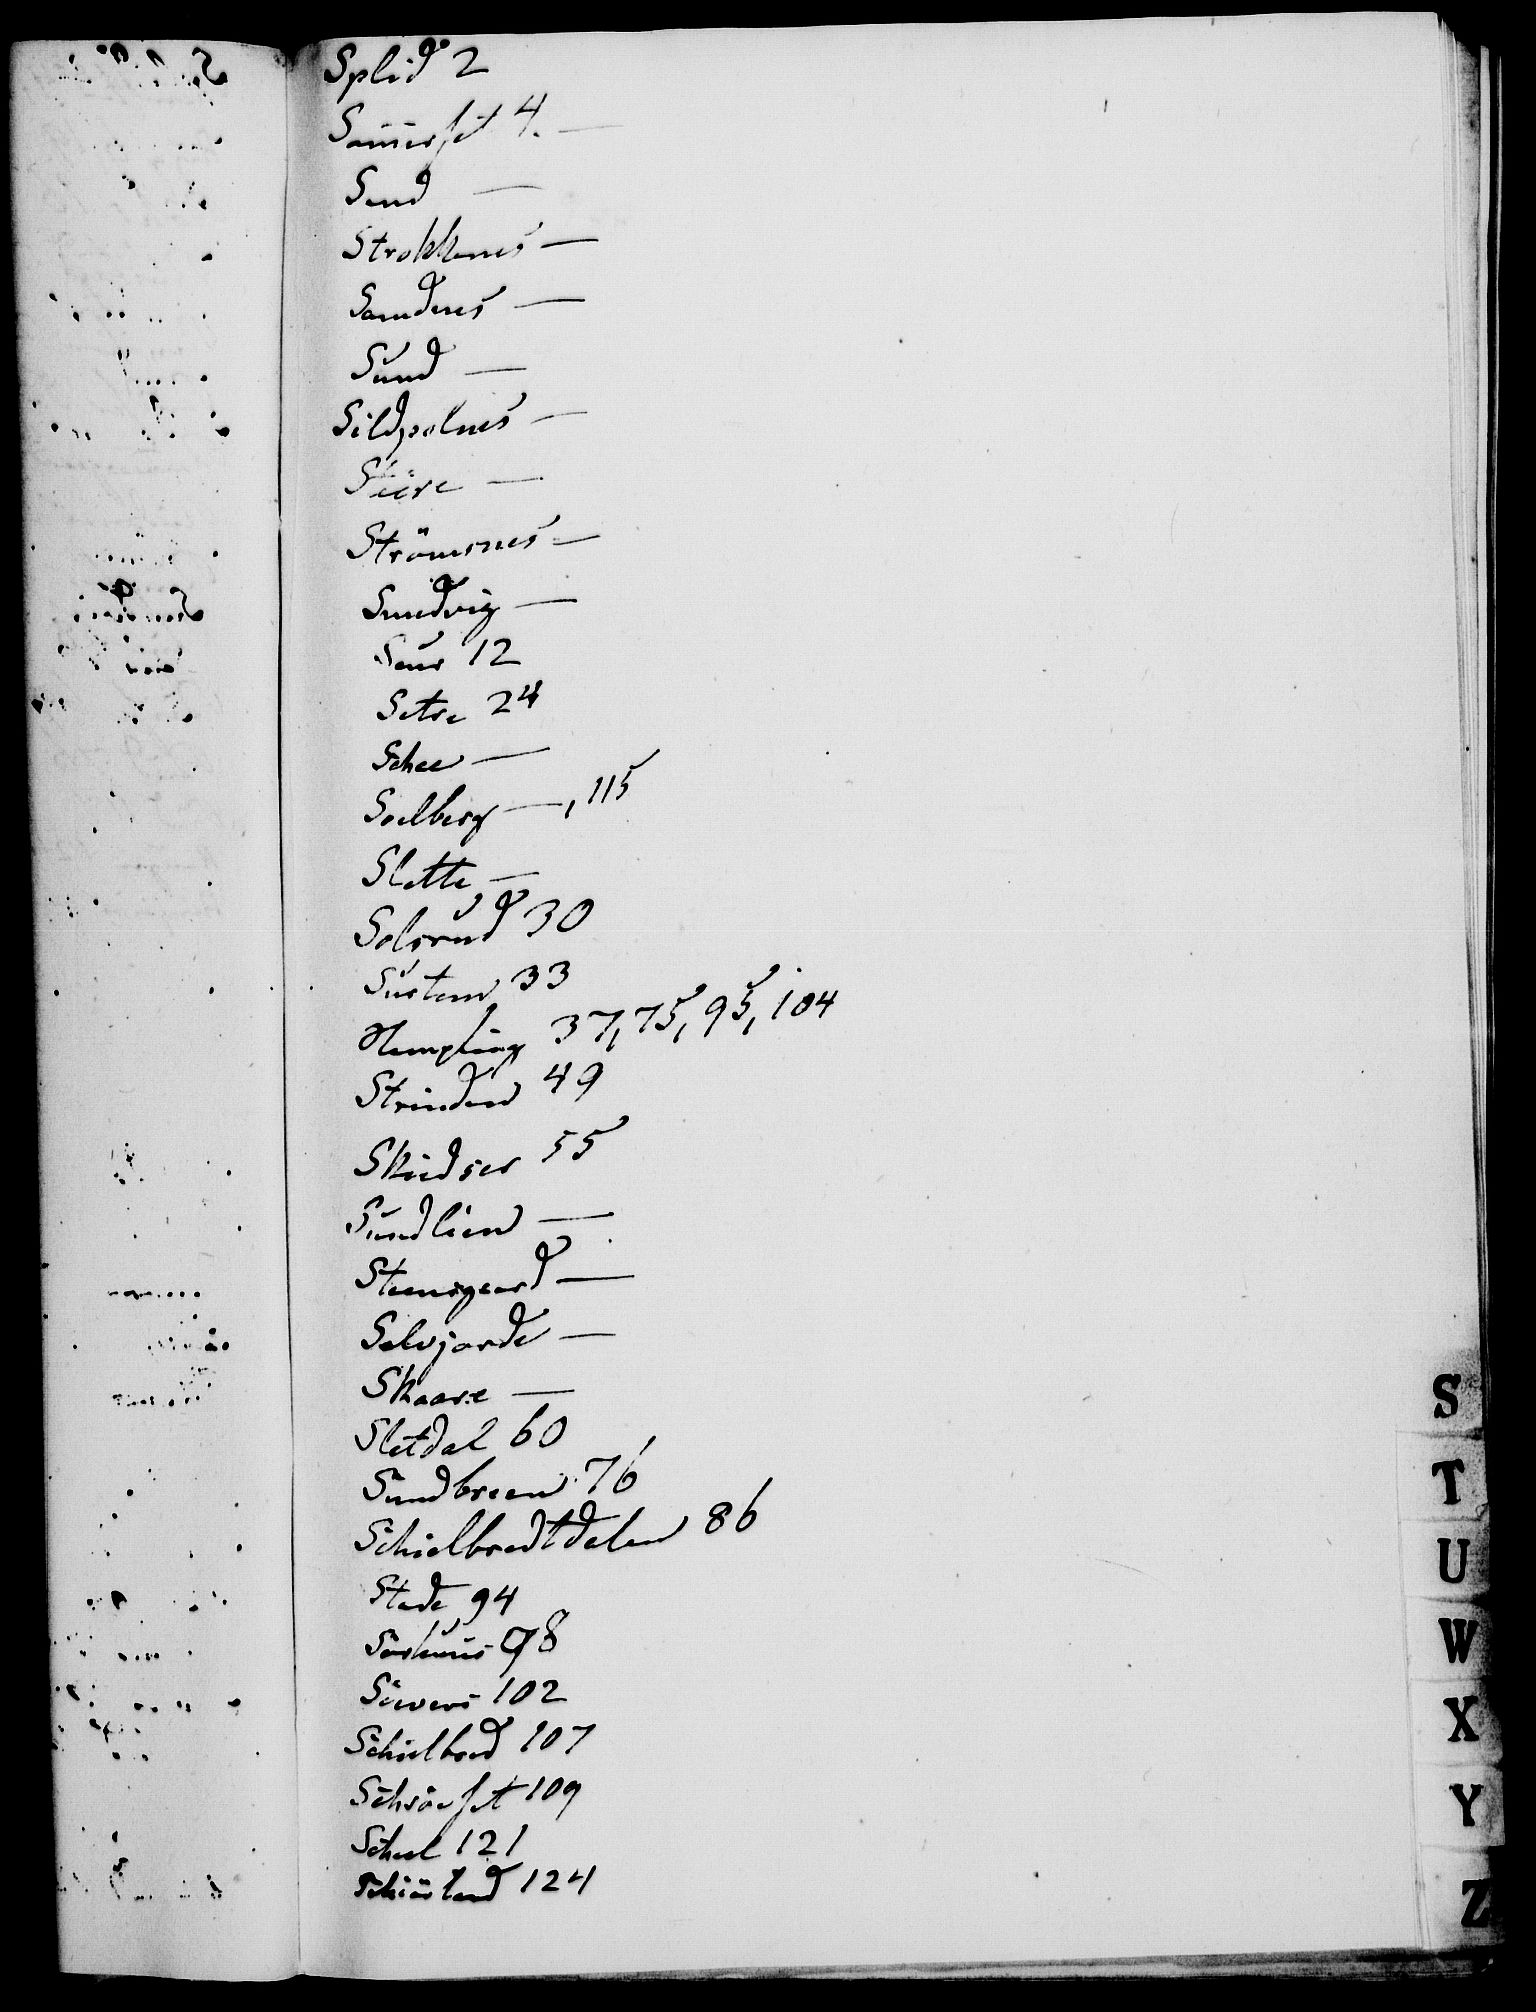 Splid 2
4. —
Sand —
Strokkenes —
Sandnes —
Sund —
Sildpolnes —
Stüre —
Strömsnes —
Sundvig —
Saur 12
Setre 24
Schee —
Soelberg —, 115
Slette —
Solsrud 30
Susten 33
Stempling 37, 75, 95, 104
Strinden 49
Skiedser 55
Sundlien —
Steensgaard —
Selvjorde —
Skaare —
Sletdal 60
Sundbreen 76
Schielbredtdalen 86
Stade 94
Sörhuus 98
Sievers 102
Schielbred 107
109
Scheel 121
124
S
T
U
W
X
Y
Z